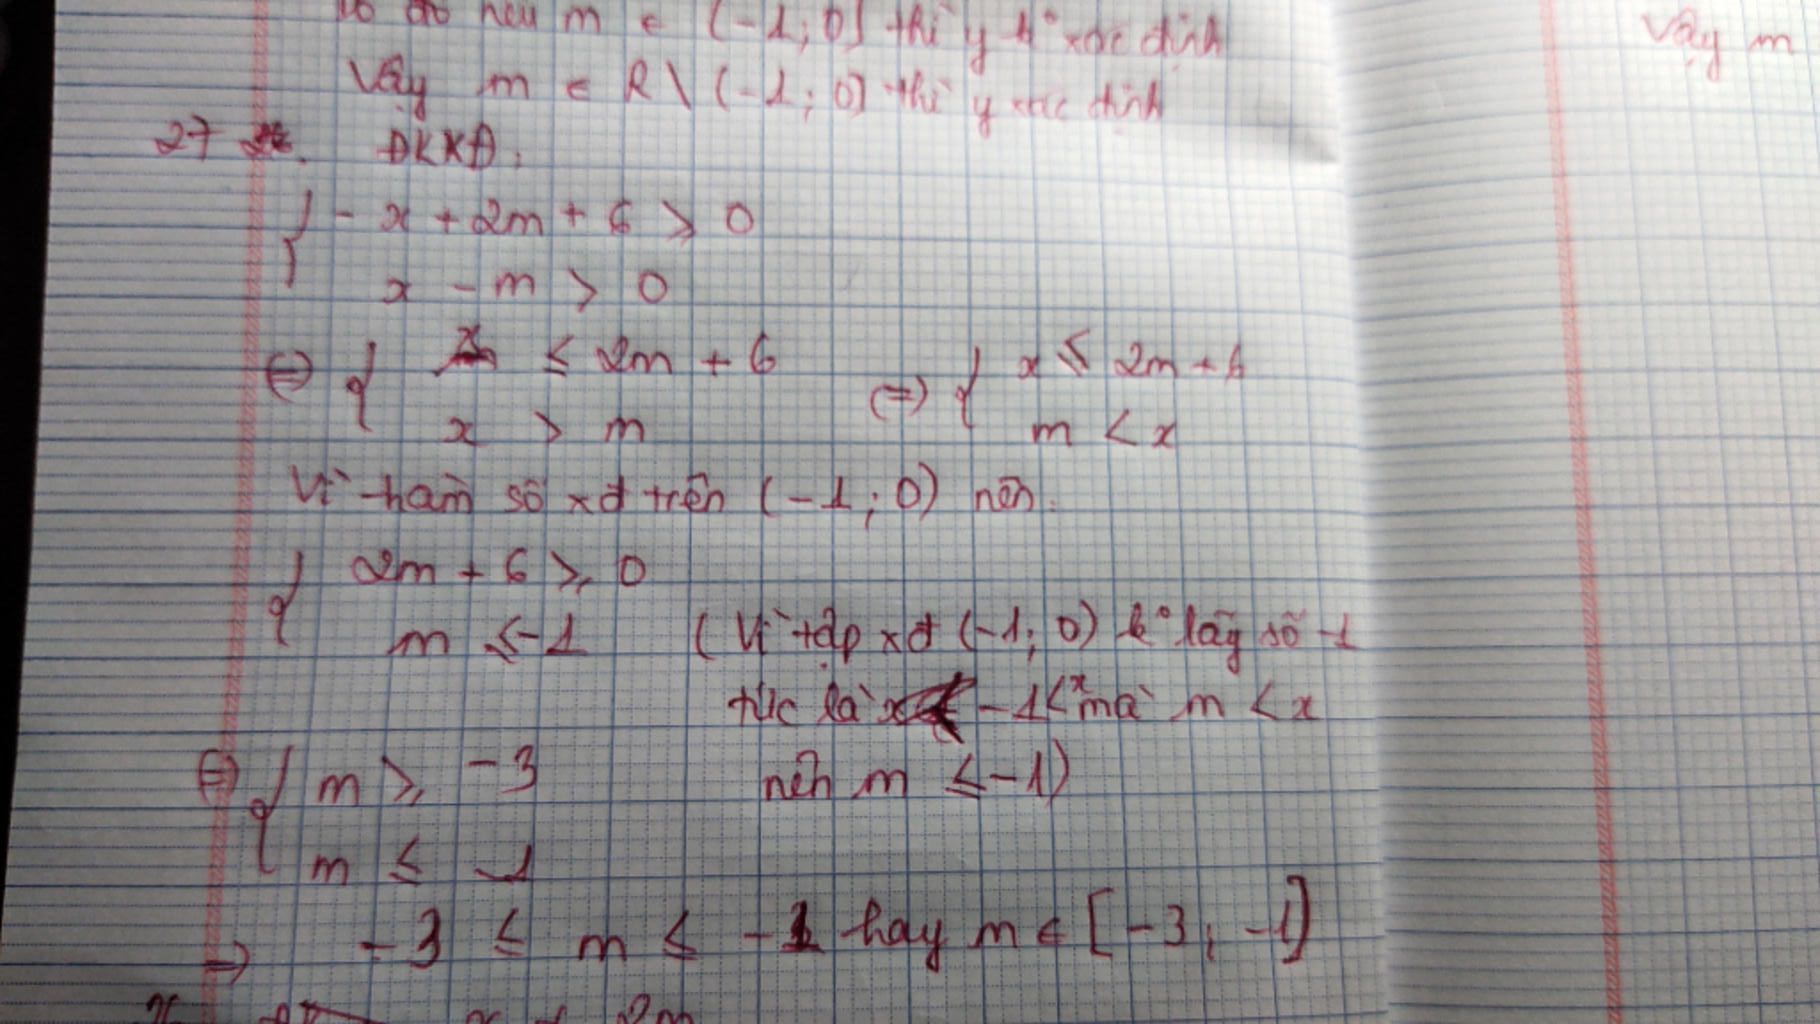 do đó nếu m ∈ (-1; 0] thì y k° xác định
Vậy m
Vậy m ∈ R \ (-1; 0] thì y xác định
27. ĐKXĐ:
{ - x + 2m + 6 ⩾ 0
x - m > 0
⇔ { x ⩽ 2m + 6 ⇔ { x ⩽ 2m + 6
x > m m < x
Vì hàm số xđ trên (-1; 0) nên:
{ 2m + 6 ⩾ 0
m ⩽ -1 (Vì tập xđ (-1; 0) k° lấy số -1
tức là -1 < x mà m < x
⇔ { m ⩾ -3 nên m ⩽ -1)
m ⩽ -1
⇒ -3 ⩽ m ⩽ -1 hay m ∈ [-3; -1]